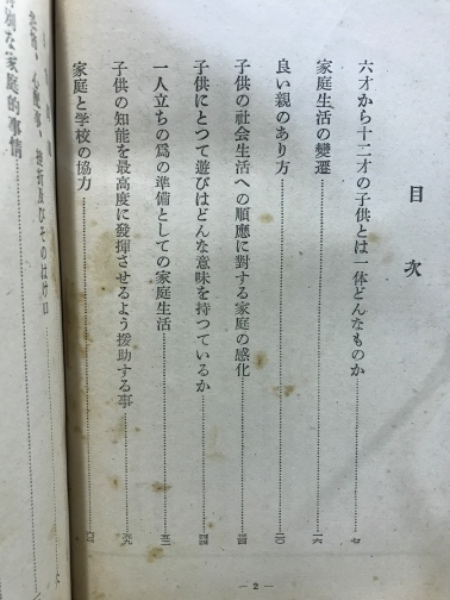 目次
六才から十二才の子供とは一体どんなものか……七
家庭生活の變遷……一六
良い親のあり方……二〇
子供の社会生活への順應に對する家庭の感化……三四
子供にとつて遊びはどんな意味を持つているか……四四
一人立ちの爲の準備としての家庭生活……五二
子供の知能を最高度に發揮させるよう援助する事……六九
家庭と学校の協力
挫折及びそのはけ口
別な家庭的事情
— 2 —